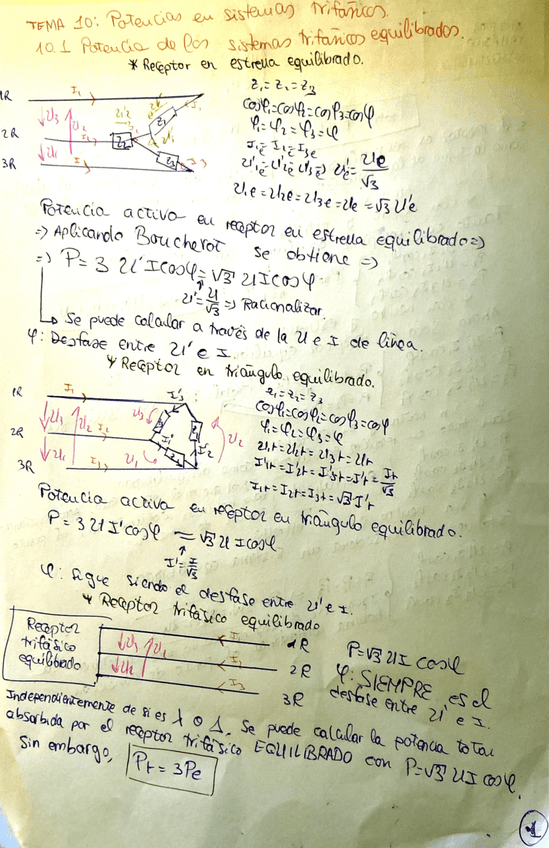 TEMA 10: Potencias en sistemas trifásicos.
10.1 Potencia de los sistemas trifásicos equilibrados.
* Receptor en estrella equilibrado.
1R
2R
3R
I1
U3 U2
U1
Z1
Z1 = Z2 = Z3
cosφ1 = cosφ2 = cosφ3 = cosφ
φ1 = φ2 = φ3 = φ
U1e = U2e = U3e = Ue = √3 U'e
Potencia activa en receptor en estrella equilibrado =>
=> Aplicando Boucherot se obtiene =>
=> P = 3 U' I cosφ = √3 U I cosφ
U' = U/√3 => Racionalizar.
Se puede calcular a través de la U e I de línea.
φ: Desfase entre U' e I.
* Receptor en triángulo equilibrado.
1R
2R
3R
I1
I'3
U3
U2
U1
I'1
I'2
Z1 = Z2 = Z3
cosφ1 = cosφ2 = cosφ3 = cosφ
φ1 = φ2 = φ3 = φ
U1t = U2t = U3t = Ut
I'1t = I'2t = I'3t = I't = It/√3
I1t = I2t = I3t = √3 I't
Potencia activa en receptor en triángulo equilibrado.
P = 3 U I' cosφ = √3 U I cosφ
I' = I/√3
φ: Sigue siendo el desfase entre U' e I.
* Receptor trifásico equilibrado
Receptor
trifásico
equilibrado
U3 U2
U1
I1
I2
I3
1R
2R
3R
P = √3 U I cosφ
φ: SIEMPRE es el
desfase entre U' e I.
Independientemente de si es λ o Δ. Se puede calcular la potencia total
absorbida por el receptor trifásico EQUILIBRADO con P = √3 U I cosφ.
Sin embargo, Pt = 3Pe
1